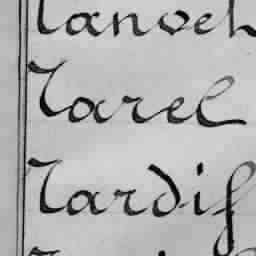 Tanoeh
Tarel
Tardif